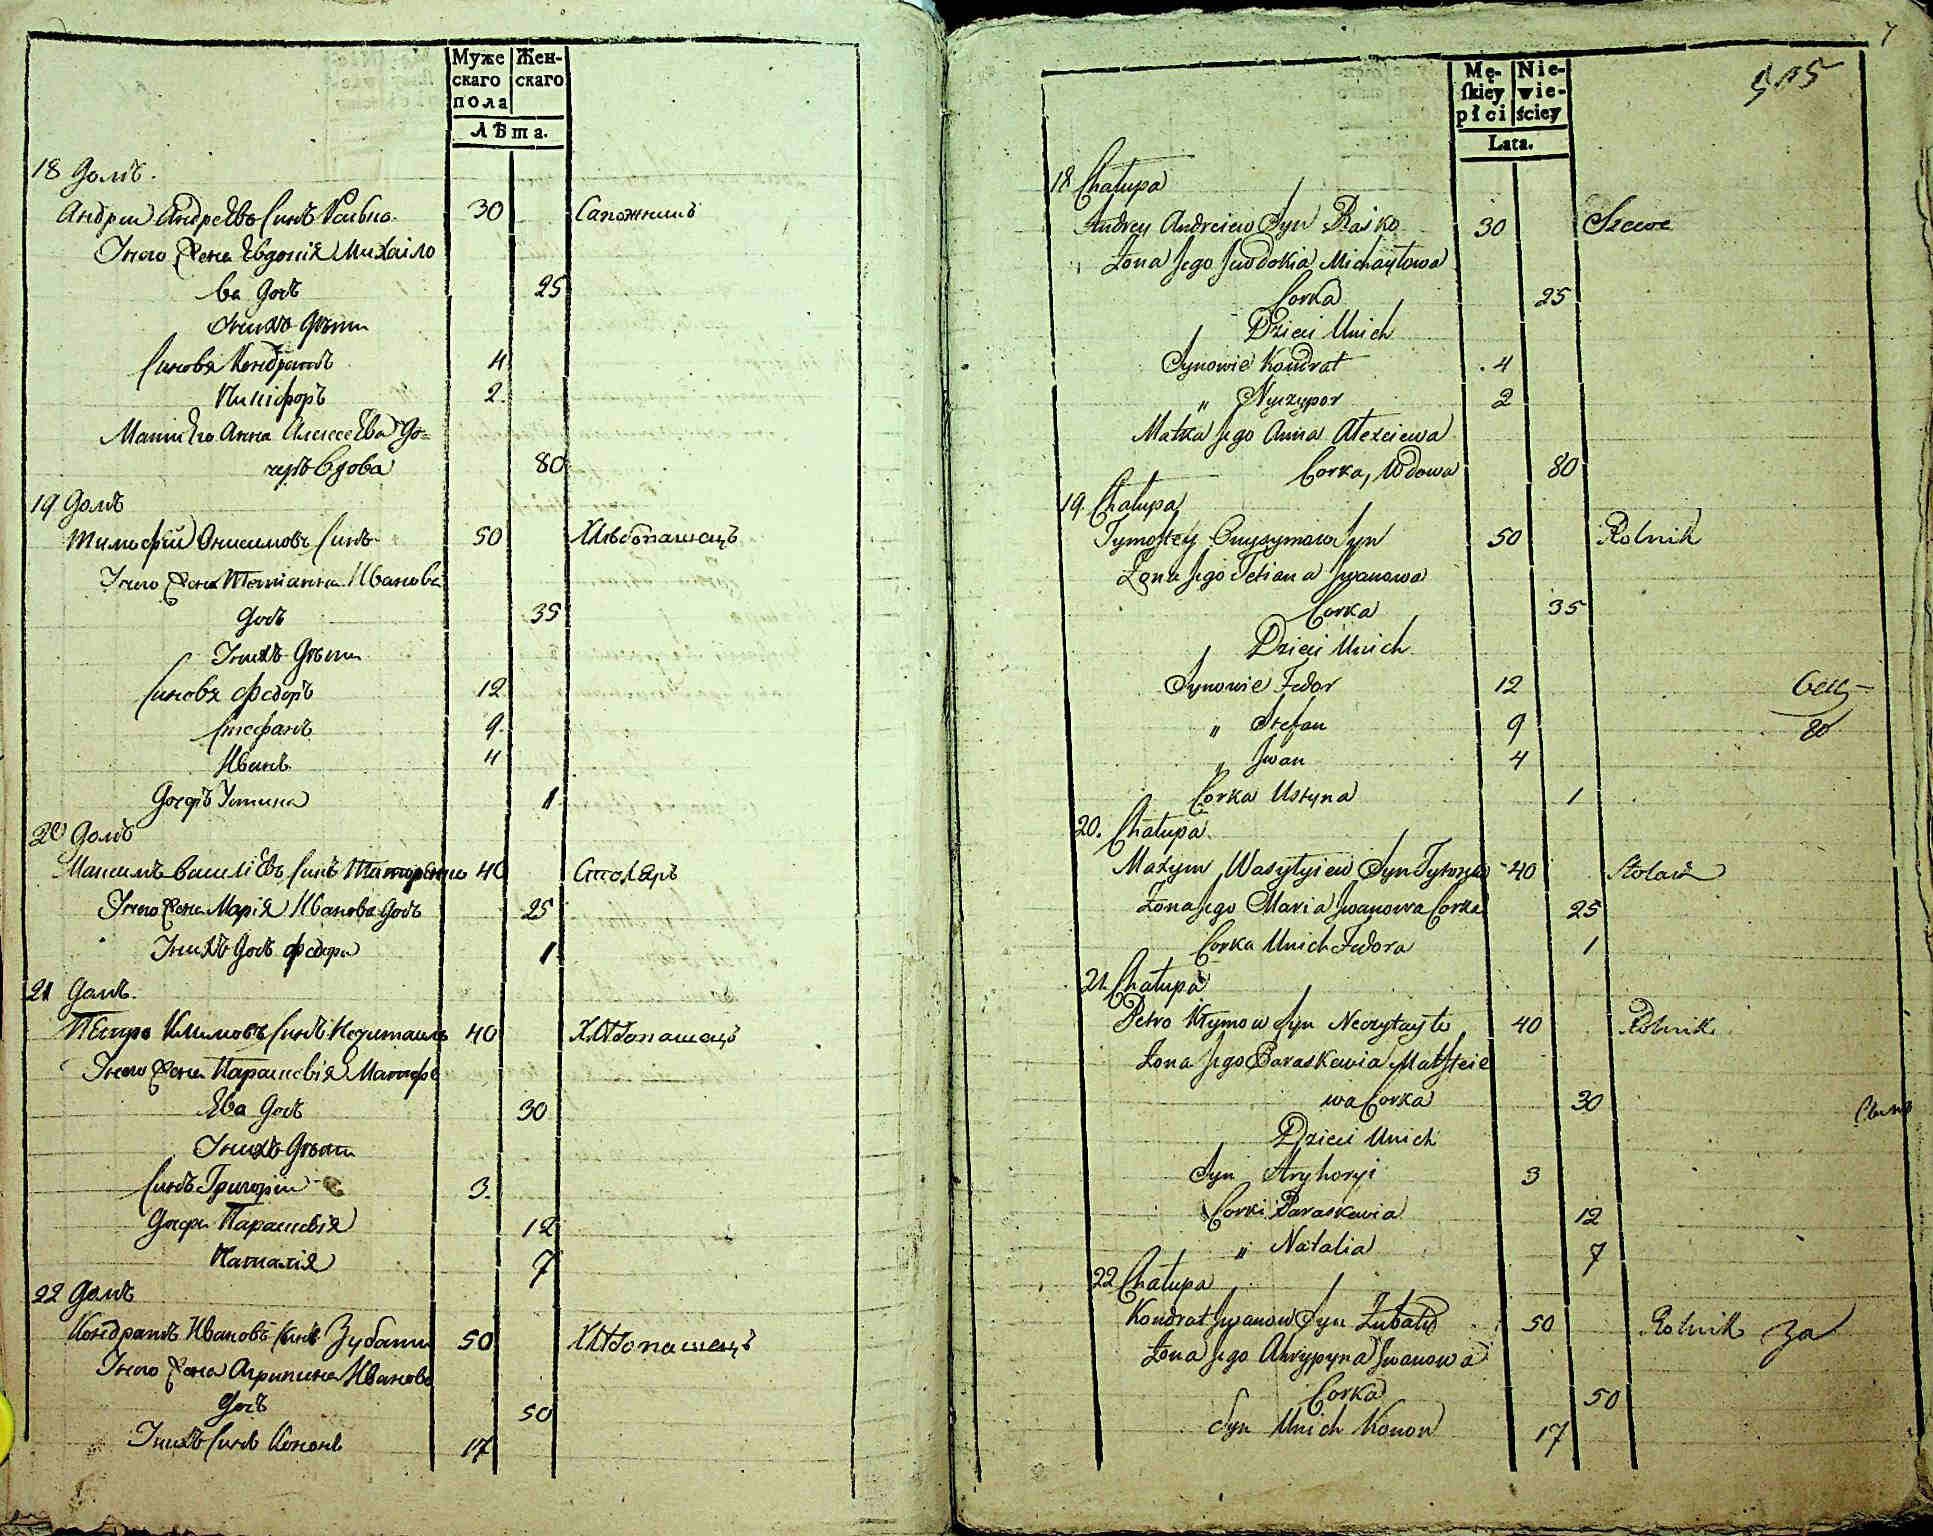 Муже Жен-
скаго скаго
пола
Лѣта.
18 Домъ.
Андрей Андреевъ Синъ 30 Сапожникъ
Унего Жена Евдокія Михайло
ва Дочь 25
Унихъ Дѣти
Синовя Кондратъ 4
Никифоръ 2.
Мати Его Анна Алексеева До=
черь Вдова 80
19 Домъ
Тимофій Онисимовъ Синъ 50 Хлѣбопашецъ
Унего Жена Татіанна Иванова
Дочь 35
Унихъ Дѣти
Синовя Федоръ 12
Стефанъ 9.
Иванъ 4
Дочерь Устина 1
20 Домъ
Максимъ Василіевъ Синъ 40 Столяръ
Унего Жена Марія Иванова Дочь 25
Унихъ Дочь Федора 1
21 Домъ.
Петро Климовъ Синъ Нечитайло 40 Хлѣбопашецъ
Унего Жена Параскевія Матфе
ева Дочь 30
Унихъ Дѣти
Синъ Григорій 3.
Дочери Параскевія 12
Наталія 7
22 Домъ
Кондратъ Ивановъ Синъ Зубатий 50 Хлѣбопашецъ
Унего Жена Агрипина Иванова
Дочь 50
Унихъ Синъ Кононъ 17
7
Mę- Nie-
ſkiey wie-
płci ściey
Lata.
18 Chałupa
Andrey Andreiew Syn Raśko 30 Szewc
Żona Jego Jewdokia Michayłowa
Corka 25
Dzieci Unich
Synowie Kondrat 4
„ Nyczypor 2
Matka Jego Anna Alexiewa
Corka, Wdowa 80
19. Chałupa
Tymofiey Onysymow Syn 50 Rolnik
Żona Jego Tetiana Jwanowa
Corka 35
Dzieci Unich
Synowie Fedor 12
„ Stefan 9
„ Jwan 4
Corka Ustyna 1
20. Chałupa
Maxym Wasylyiew Syn 40 Stolarz
Żona Jego Maria Jwanowa Corka 25
Corka Unich Fedora 1
21. Chałupa
Petro Kłymow Syn Neczytayło 40 Rolnik
Żona Jego Paraskewia Matfieie
wa Corka 30
Dzieci Unich
Syn Hryhoryi 3
Corki Paraskewia 12
„ Natalia 7
22 Chałupa
Kondrat Jwanow Syn Zubatyi 50 Rolnik За
Żona Jego Ahrypyna Jwanowa
Corka 50
Syn Unich Konon 17